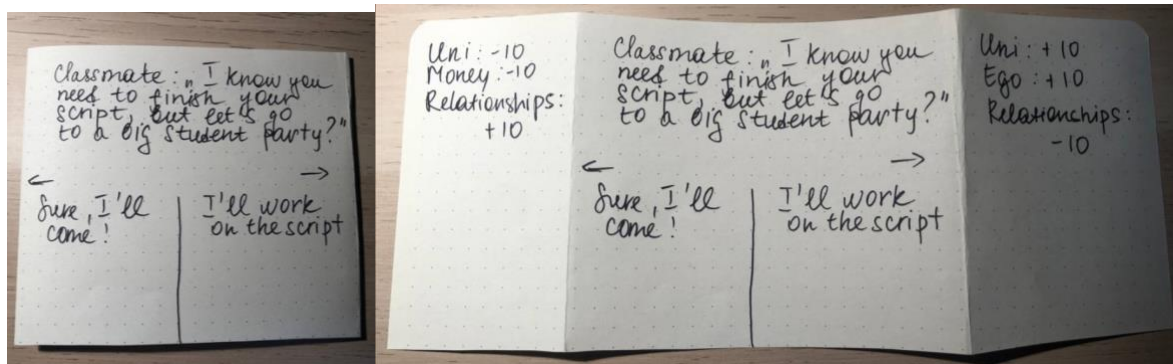 Classmate: „I know you
need to finish your
script, but let's go
to a big student party?"
← →
Sure, I'll
come!
I'll work
on the script
Uni: -10
Money: -10
Relationships:
+10
Classmate: „I know you
need to finish your
script, but let's go
to a big student party?"
← →
Sure, I'll
come!
I'll work
on the script
Uni: +10
Ego: +10
Relationships:
-10